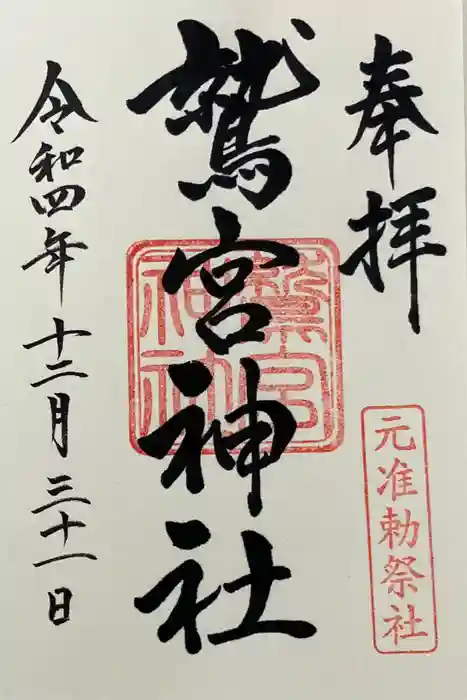 奉拝
元准勅祭社
鷲宮神社
鷲宮
神社
令和四年十二月三十一日